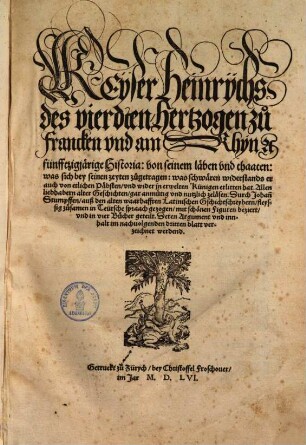 Keyser Heinrychs
des vierdten Hertzogen zů
Francken vnd am Rhyn ꝛc
fünfftzigjärige Historia: von seinem läben vnd thaaten:
was sich bey seinen zeyten zůgetragen: was schwären widerstands er
auch von etlichen Päbsten/ vnd wider jn erwelten Künigen erlitten hat. Allen
liebhabern alter Geschichten/ gar anmůtig vnd nutzlich zůläsen. Durch Johan
Stumpffen/ auß den alten waarhafften Latinischen Gschichtschreybern/ fleys-
sig zůsamen in Teütsche spraach gezogen: mit schönen Figuren beziert/
vnd in vier Bücher geteilt. Deren Argument vnd inn-
halt im nachuolgenden dritten blatt ver-
zeichnet werdend.
Getruckt zů Zürych/ bey Christoffel Froschouer/
im Jar M. D. LVI.